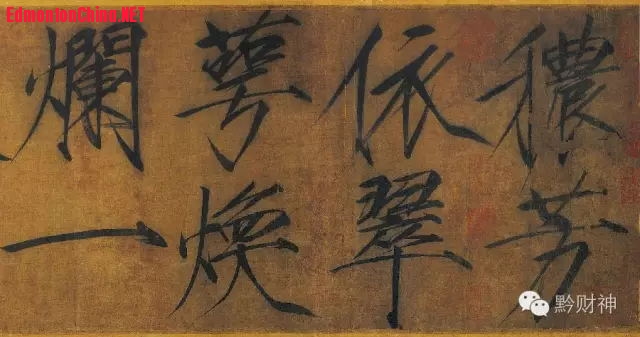 EdmontonChina.NET
穠芳
依翠
萼煥
爛一
黔财神